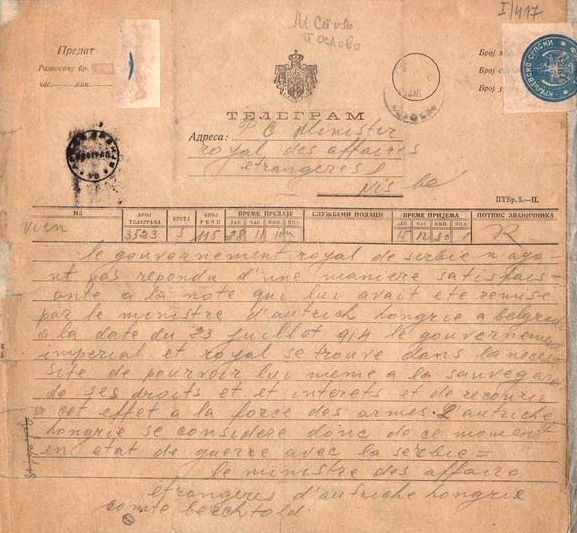 I/417
М стол
Предат
Разносачу бр.
час. мин.
Број
Број
Број
КРАЉЕВСКО-СРПСКИ
ТЕЛЕГРАМ
Адреса:
Minister
royal des affaires
etrangeres
Nis
ПТБр. 5.—II.
ИЗ
БРОЈ ТЕЛЕГРАМА
ВРСТА
БРОЈ РЕЧИ
ВРЕМЕ ПРЕДАЈЕ
СЛУЖБЕНИ ПОДАЦИ
ВРЕМЕ ПРИЈЕМА
ПОТПИС ЗВАНИЧНИКА
ДАН. ЧАС. МИН.
ДАН. ЧАС. МИН.
3523 S 115 28 11 12 30 R
le gouvernement royal de serbie n aya
nt pas repondu d'une maniere satisfais
ante a la note qui lui avait ete remise
par le ministre d'autriche hongrie a belgrade
a la date du 23 juillot 914 le gouvernement
imperial et royal se trouve dans la neces
site de pourvoir lui meme a la sauvegar
de ses droits et et interets et de recourir
a cet effet a la force des armes. L autriche
hongrie se considere donc de ce moment
en etat de guerre avec la serbie =
le ministre des affaire
etrangeres d'autriche hongrie
comte berchtold.